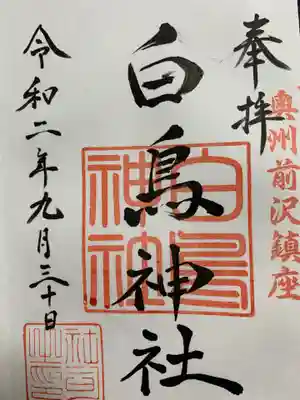 奥州前沢鎮座
奉拝
白鳥神社
白鳥神社
令和二年九月三十日